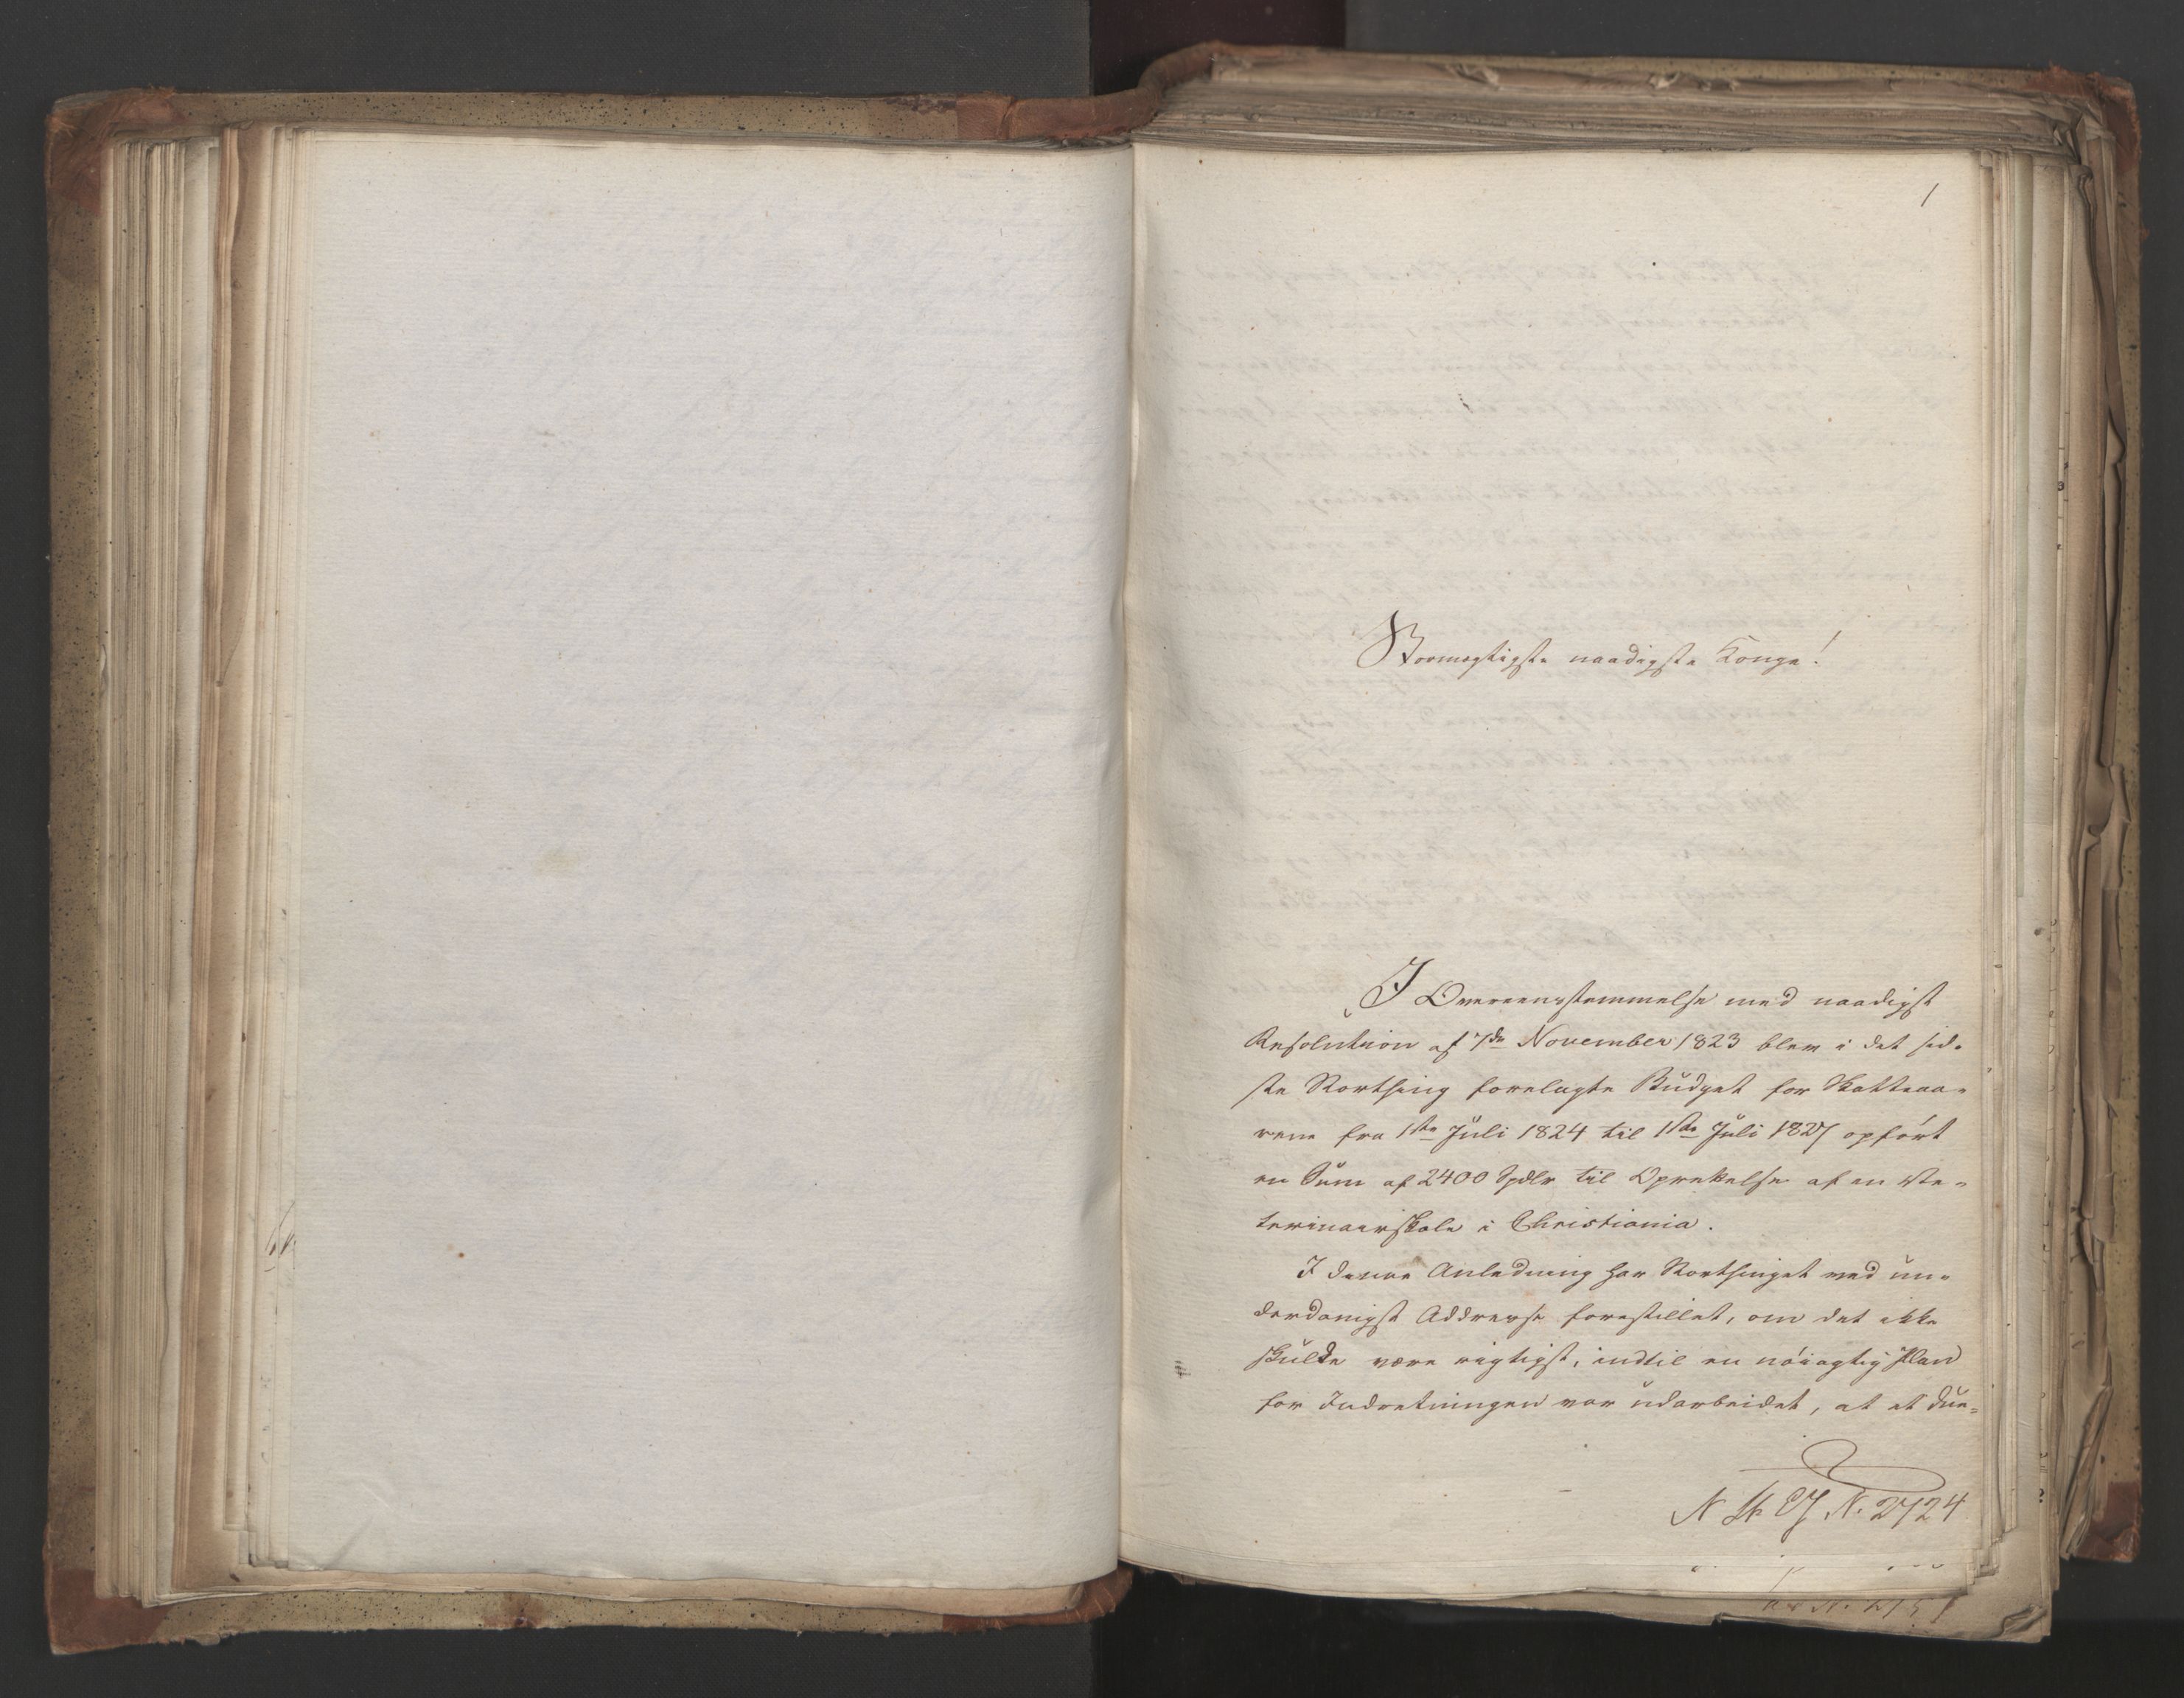 1
Stormægtigste naadigste Konge!
I Overeensstemmelse med naadigst
Resolution af 7de November 1823 blev i det sid-
ste Storthing forelagte Budget for Skatteaa-
rene fra 1ste Juli 1824 til 1ste Juli 1827 opført
en Sum af 2400 Spdlr til Oprettelse af en Ve-
terinairskole i Christiania.
I denne Anledning har Storthinget ved un-
derdanigst Addresse forestillet, om det ikke
skulde være rigtigst, indtil en nøiagtig Plan
for Indretningen var udarbeidet, at et due-
N. 2724